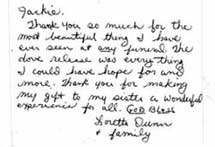 Jackie,
Thank you so much for the
most beautiful thing I have
ever seen at any funeral. The
dove release was everything
I could have hope for and
more. Thank you for making
my gift to my sister a wonderful
experience for all. God Bless
Loretta Dunn
+ family